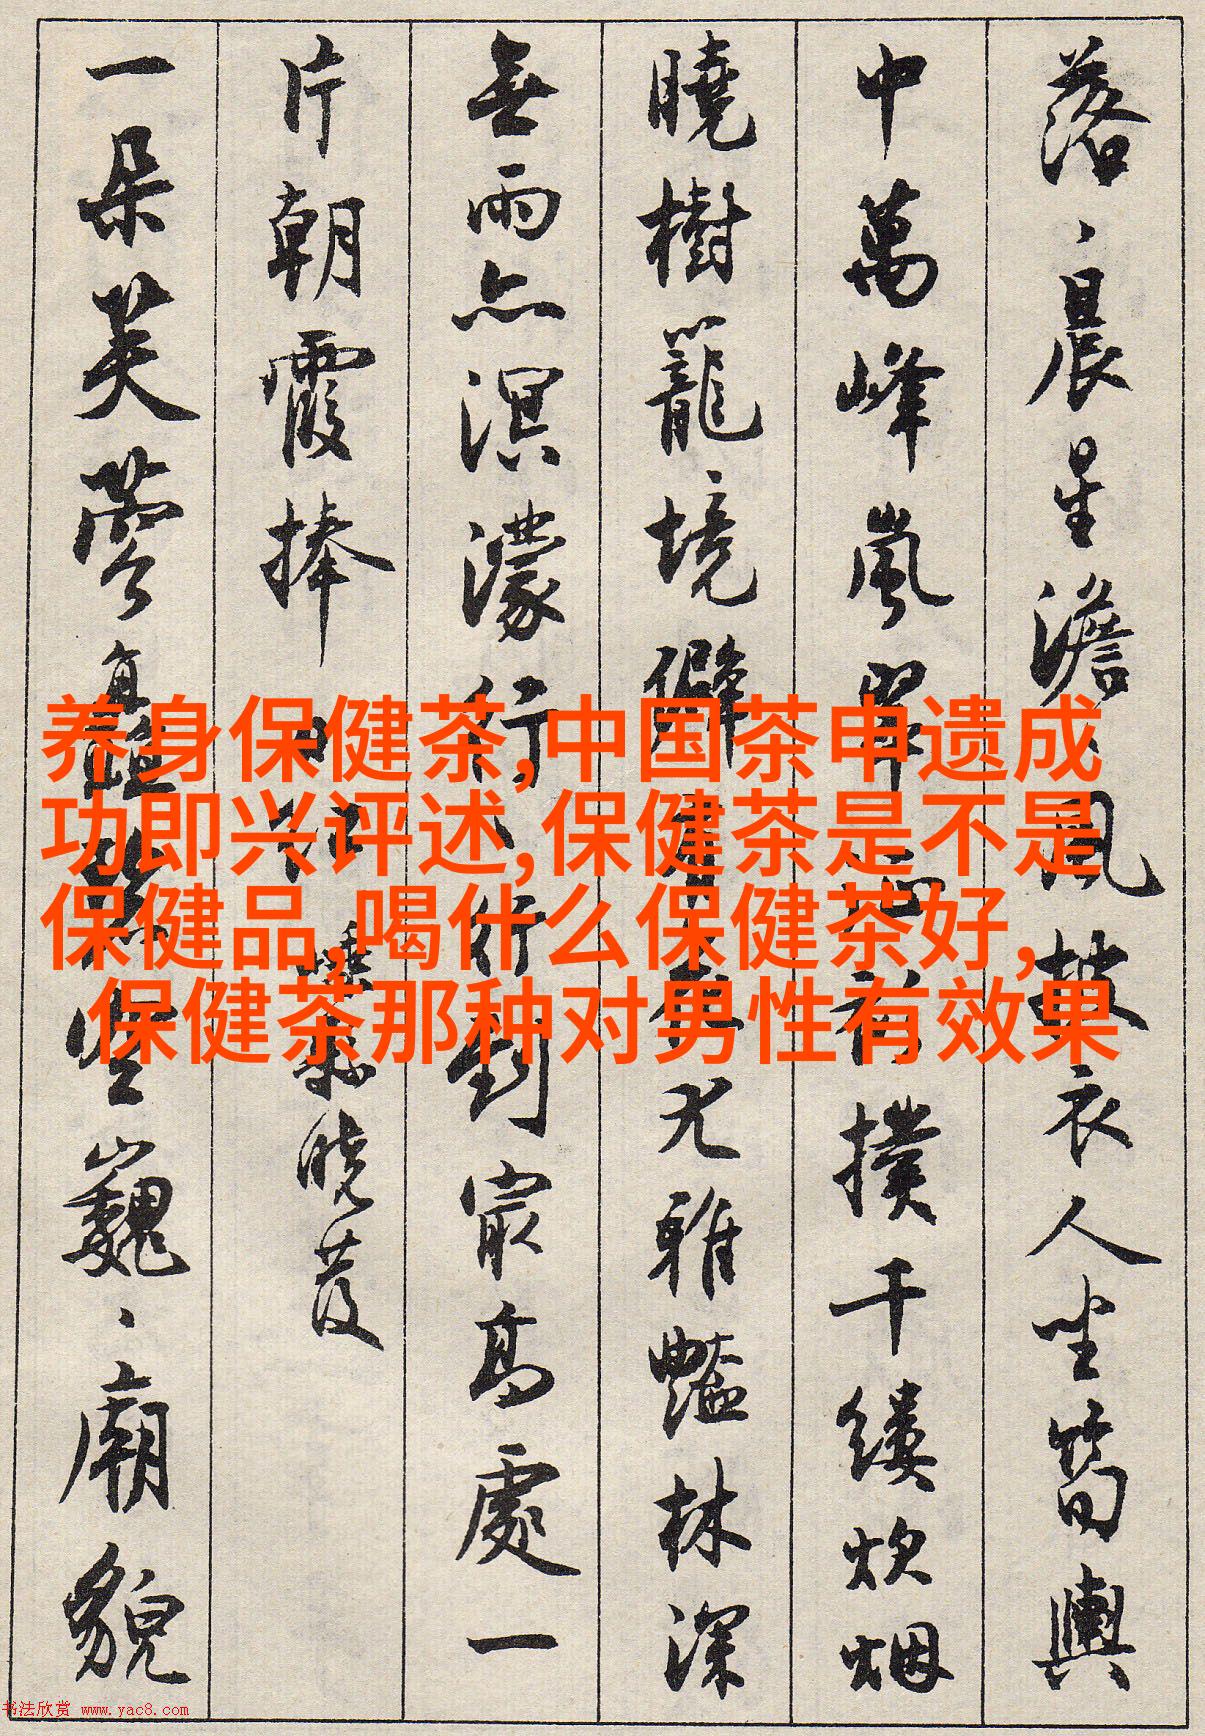 落、晨星澹、風披衣人坐筍輿
中萬峰嵐翠 撲千縷炊烟
曉樹籠境僻 尤雅豔林深
無雨亦溟濛行、行到最高處一
片朝霞捧
曉發
一朵芙蓉 巍、廟貌
养身保健茶,中国茶申遗成
功即兴评述,保健茶是不是
保健品,喝什么保健茶好,
保健茶那种对男性有效果
书法欣赏 www.yac8.com